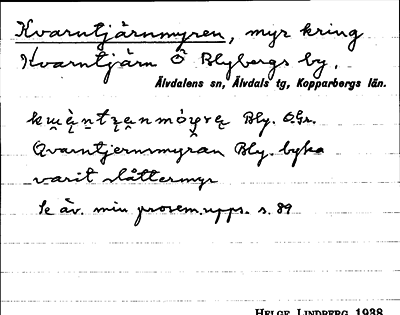 Kvarntjärnmyren, myr kring
Kvarntjärn Ö Blybergs by.
Älvdalens sn, Älvdals tg, Kopparbergs län.
Bly. OGr.
Qvarntjernsmyran Bly.
varit slåttermyr
Se äv. min prosem.upps. s. 89
HELGE LINDBERG 1938